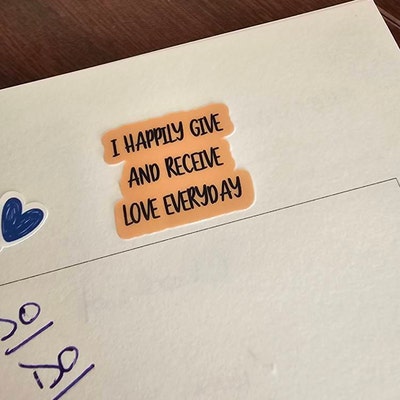 I HAPPILY GIVE
AND RECEIVE
LOVE EVERYDAY